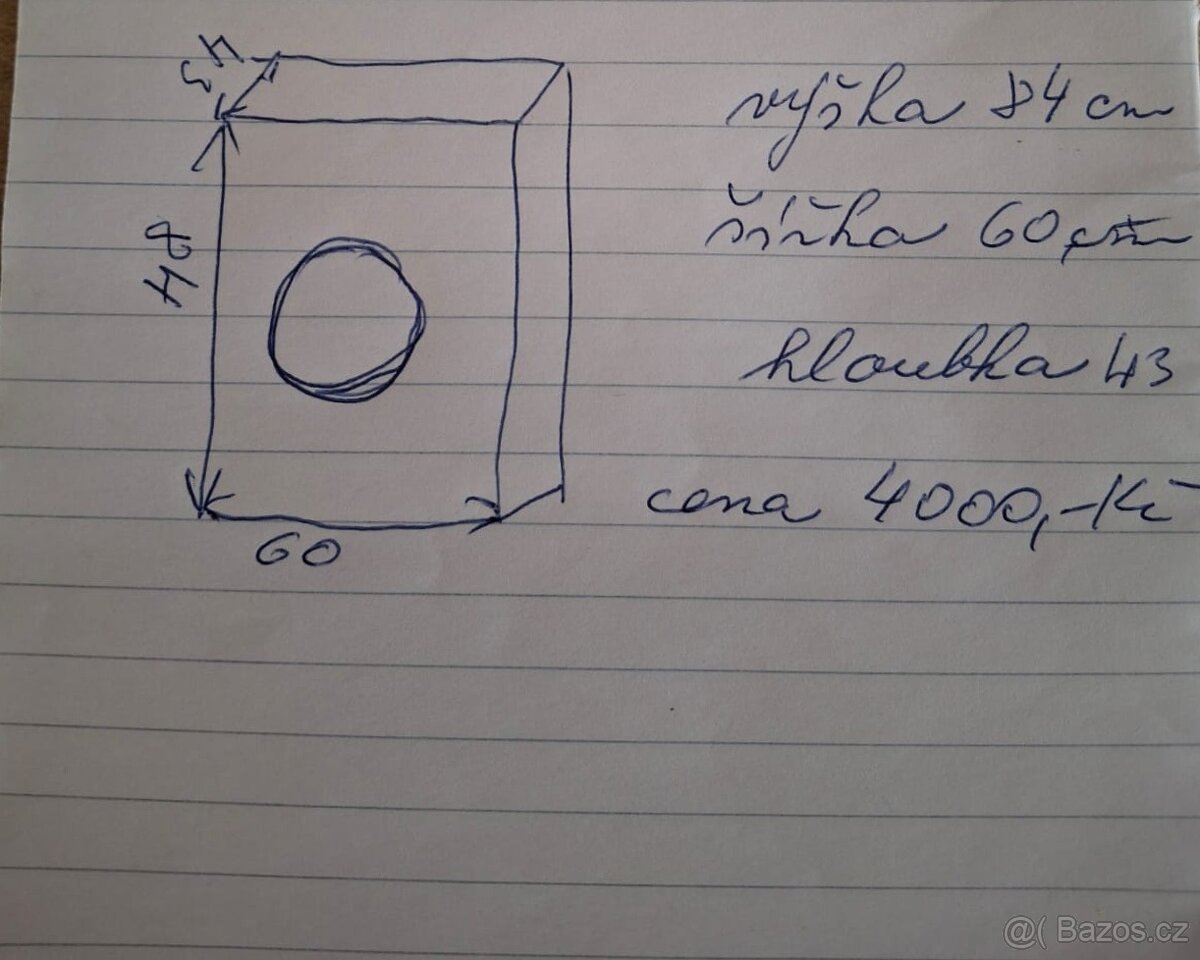 43
výška 84 cm
84
šířka 60 cm
hloubka 43
cena 4000,-Kč
60
@( Bazos.cz